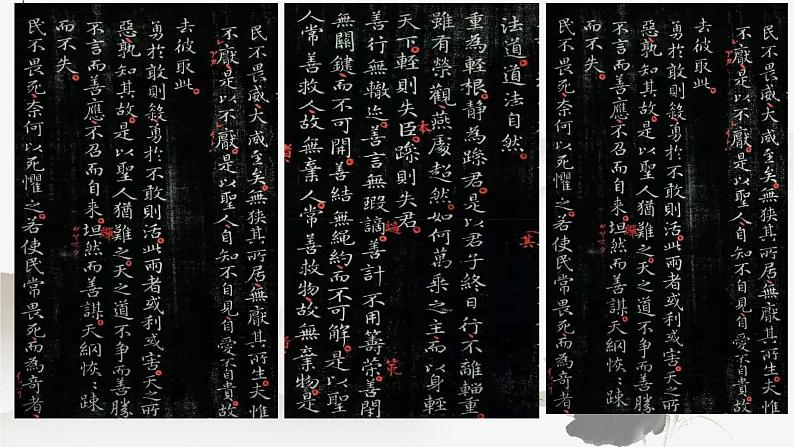 民不畏威大威至矣無狹其所居無厭其所生夫惟
不厭是以不厭是以聖人自知不自見自愛不自貴故
去彼取此
勇於敢則殺勇於不敢則活此兩者或利或害天之所
惡孰知其故是以聖人猶難之天之道不爭而善勝
不言而善應不召而自來坦然而善謀天網恢〻踈
而不失
民不畏死奈何以死懼之若使民常畏死而為奇者
法道道法自然
重為輕根靜為躁君是以君子終日行不離輜重
雖有榮觀燕處超然如何萬乘之主而以身輕
天下輕則失臣躁則失君
善行無轍迹善言無瑕謫善計不用籌策善閉
無關鍵而不可開善結無繩約而不可解是以聖
人常善救人故無棄人常善救物故無棄物是
民不畏威大威至矣無狹其所居無厭其所生夫惟
不厭是以不厭是以聖人自知不自見自愛不自貴故
去彼取此
勇於敢則殺勇於不敢則活此兩者或利或害天之所
惡孰知其故是以聖人猶難之天之道不爭而善勝
不言而善應不召而自來坦然而善謀天網恢〻踈
而不失
民不畏死奈何以死懼之若使民常畏死而為奇者